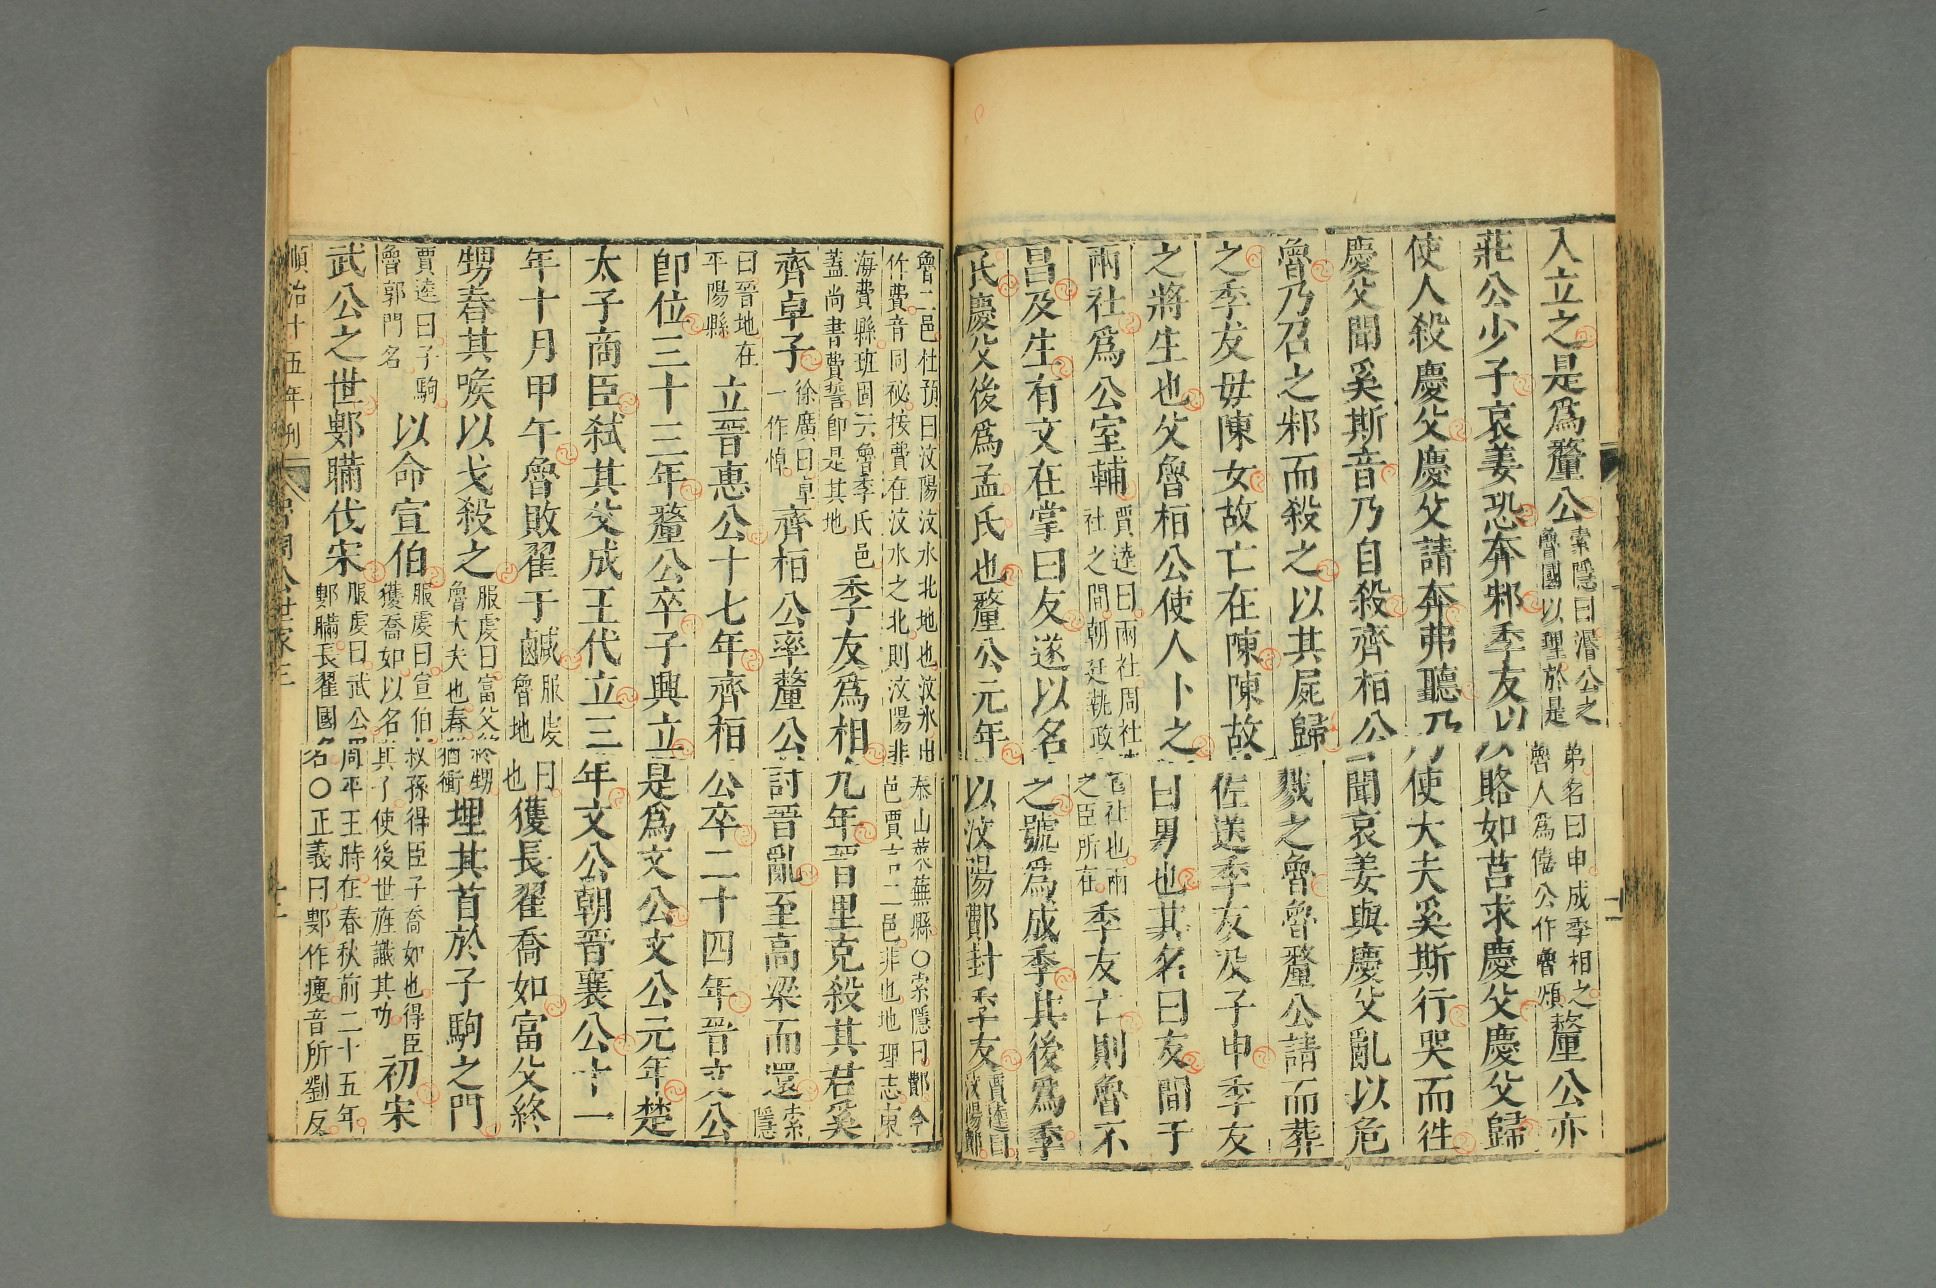 入立之是爲釐公索隱曰湣公之弟名曰申成季相之魯國以理於是魯人爲僖公作魯頌釐公亦
莊公少子哀姜恐奔邾季友以賂如莒求慶父慶父歸
使人殺慶父慶父請奔弗聽乃使大夫奚斯行哭而徃
慶父聞奚斯音乃自殺齊桓公聞哀姜與慶父亂以危
魯乃召之邾而殺之以其屍歸戮之魯魯釐公請而葬
之季友毋陳女故亡在陳陳故佐送季友及子申季友
之將生也父魯桓公使人卜之曰男也其名曰友間于
兩社爲公室輔賈逵曰兩社周社亳社也兩社之間朝廷執政之臣所在季友亡則魯不
昌及生有文在掌曰友遂以名之號爲成季其後爲季
氏慶父後爲孟氏也釐公元年以汶陽鄪封季友賈逵曰汶陽鄪
魯二邑杜預曰汶陽汶水北地也汶水出泰山萊蕪縣○索隱曰鄪今作費音同祕按費在汶水之北則汶陽非邑賈言二邑非也地理志東
海費縣班固云魯季氏邑蓋尚書費誓即是其地季友爲相九年晉里克殺其君奚
齊卓子徐廣曰卓一作悼齊桓公率釐公討晉亂至高梁而還索隱
曰晉地在平陽縣立晉惠公十七年齊桓公卒二十四年晉文公
卽位三十三年釐公卒子興立是爲文公文公元年楚
太子商臣弑其父成王代立三年文公朝晉襄公十一
年十月甲午魯敗翟于鹹服虔曰魯地也獲長翟喬如富父終
甥舂其喉以戈殺之服虔曰富父終甥魯大夫也舂猶衝埋其首於子駒之門
賈逵曰子駒魯郭門名以命宣伯服虔曰宣伯叔孫得臣子喬如也得臣獲喬如以名其子使後世旌識其功初宋
武公之世鄋瞞伐宋服虔曰武公周平王時在春秋前二十五年鄋瞞長翟國名○正義曰鄋作廋音所劉反
順治十五年刊 魯周公世家三